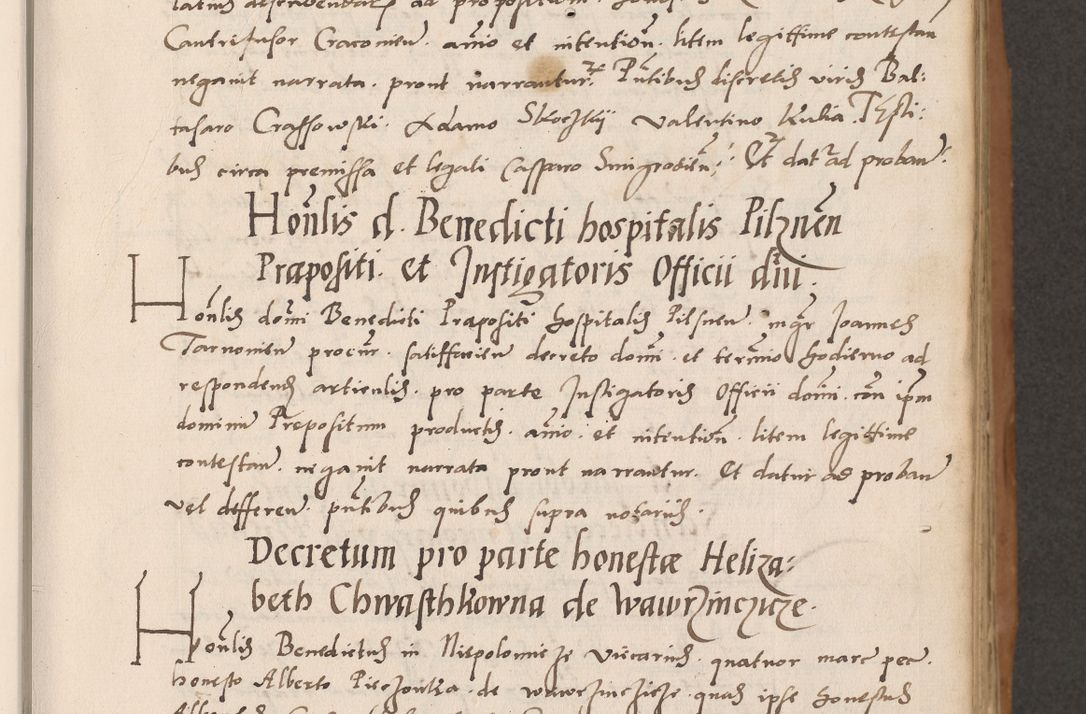 Cautrifusor Cracovien. animo et intention. litem legittime contestan
negavit narrata. prout narrantur. Pntibus discretis viris Bal:
tasaro Crassowski. Adamo Skoczkii Valentino Kulia. Testi:
bus circa premissa et legali Casparo Smigroden. Et datur ad proban.
Honlis d. Benedicti hospitalis Pilznen
Præpositi. et Instigatoris Officii dni.
Honlis domini Benedicti Præpositi hospitalis Pilsnen. mgr Joannes
Tarnovien procur. satisfacien decreto domini. et termino hodierno ad
respondendum articulis. pro parte Instigatoris Officii domini. con ipm
dominum Prepositum productis. animo. et intention. litem legittime
contestan. negavit narrata prout narrantur. Et datur ad proban
vel differen. pntibus quibus supra notariis.
Decretum pro parte honestæ Heliza:
beth Chwasthkowna de Wawrzinczicze.
Honlis Benedictus in Niepolomicze Vicarius. quatuor marc pec.
honesto Alberto Pieczonka. de wawrzinczicze. quas ipse honestus